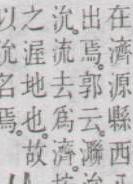 在濟源縣西
出焉。郭云。㶌
沇。流去爲濟。
之渥地也。故
以沇名焉。